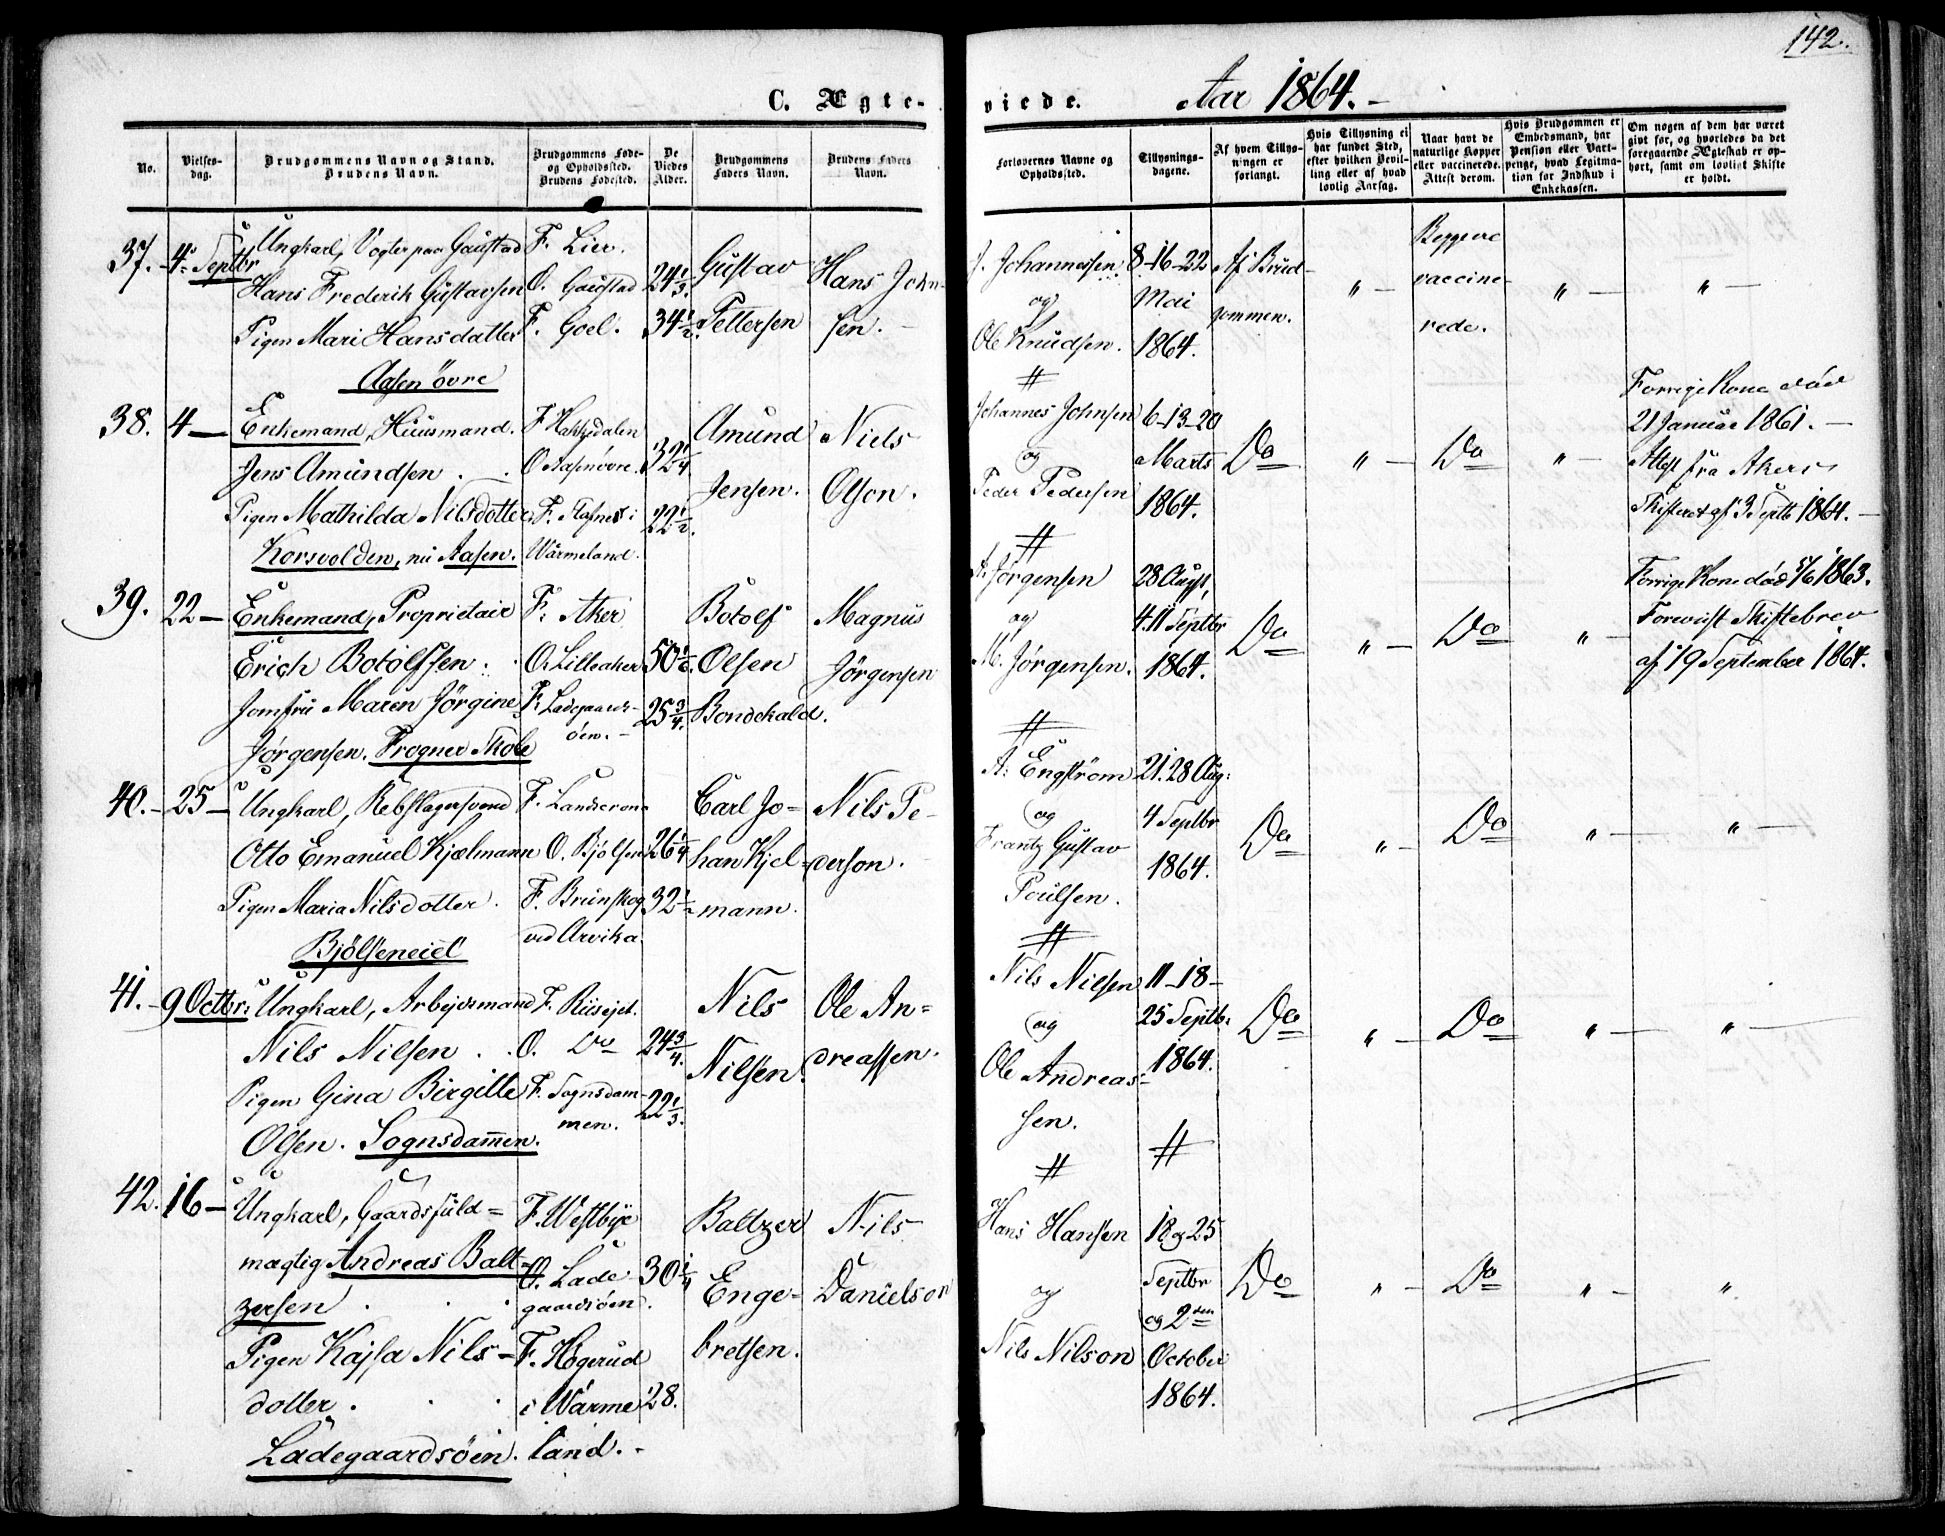 142.
C. Ægte-
viede. Aar 1864.-
No.
Vielses-
dag.
Brudgommens Navn og Stand.
Brudens Navn.
Brudgommens Føde-
og Opholdssted.
Brudens Fødested.
De
Viedes
Alder.
Brudgommens
Faders Navn.
Brudens Faders
Navn.
Forlovernes Navne og
Opholdssted.
Tillysnings-
dagene.
Af hvem Tillys-
ningen er
forlangt.
Hvis Tillysning ei
har fundet Sted,
efter hvilken Bevil-
ling eller af hvad
lovlig Aarsag.
Naar havt de
naturlige Kopper
eller vaccinerede.
Attest derom.
Hvis Brudgommen er
Embedsmand, har
Pension eller Vart-
penge, hvad Legitma-
tion for Indskud i
Enkekassen.
Om nogen af dem har været
gift før, og hvorledes da det
foregaaende Ægteskab er op-
hørt, samt om lovligt Skifte
er holdt.
37. 4de Septbr
Ungkarl, Vogter paa Gaustad
Hans Frederik Gustavsen
Pigen Mari Hansdatter
Aasen øvre
F. Lier.
O. Gaustad
F. Goel.
24 1/3.
34 1/2.
Gustav
Pettersen
Hans John-
sen. -
J. Johannesen
og
Ole Knudsen.
#
8-16-22
Mai
1864.
Af Brud-
gommen.
" -
Begge re
vaccine-
rede.
" -
" -
38. 4 -
Enkemand, Huusmand.
Jens Amundsen . .
Pigen Mathilda Nilsdotter
Korsvolden, nu Aasen.
F. Hakkedalen
O. Aasen øvre.
F. Stafnes i
Wärmeland.
32 1/4
22 1/2.
Amund
Jensen.
Niels
Olson.
Johannes Johnsen
og
Peder Pedersen
#
6-13-20
Marts
1864.
Do
" -
Do
" -
Forrige Kone død
21 Januar 1861. -
Attest fra Akers
Skifteret af 3 Septb 1864. -
39. 22 -
Enkemand, Proprietair
Erich Botolfsen . .
Jomfru Maren Jörgine
Jørgensen. Frogner Skole
F. Aker
O. Lilleaker
F. Ladegaards-
öen. -
50 1/6.
25 3/4.
Botolf
Olsen
Bondekald.
Magnus
Jörgensen
A. Jörgensen
og
M. Jørgensen.
#
28 August,
4. 11 Septbr
1864.
Do
" -
Do
" -
Forrige Kone død 5/6 1863.
Foreviist Skiftebrev
af 19 September 1864.
40. - 25 -
Ungkarl, Rebslagersvend
Otto Emanuel Kjælmann
Pigen Maria Nilsdotter .
Bjölseneiet
F. Landscrona
O. Bjölsen
F. Brunskog
ved Arvika.
26 1/4
32 1/2
Carl Jo-
han Kjel-
mann.
Nils Pe-
derson.
A. Engström
og
Frantz Gustav
Poulsen.
#
21. 28 Aug:
4 Septbr
1864.
Do
" -
Do
" -
" -
41. - 9 Octbr:
Ungkarl, Arbejdsmand
Nils Nilsen . .
Pigen Gina Birgitte
Olsen. Sognsdammen.
F. Riisejet.
O. Do
F. Sognsdam-
men.
24 3/4.
22 1/3.
Nils
Nilsen.
Ole An=
dreassen.
Nils Nilsen
og
Ole Andreas-
sen.
#
11-18-
25 Septb:
1864.
#
Do
" -
Do
" -
" -
42. 16 -
Ungkarl, Gaardsfuld=
mægtig Andreas Balt-
zersen . . .
Pigen Kajsa Nils-
dotter . . .
Ladegaardsöen.
F. Westbye
O. Lade-
gaardsöen.
F. Högerud
i Wärme
land. -
30 1/4
28.
Baltzer
Enge-
bretsen.
Nils
Danielson
Hans Hansen
og
Nils Nilson
18 og 25
Septbr
og 2den
October
1864.
Do
" -
Do
" -
"